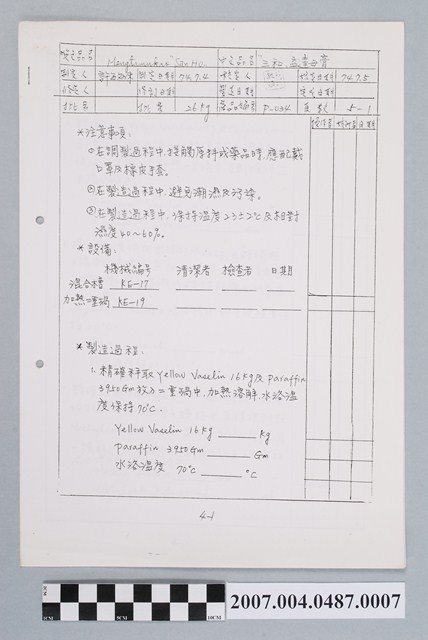 英文品名 Mengtannleei "San Ho" 中文品名 "三和"孟當蕾膏
制定人 制定日期 74.7.4 核定人 核定日期 74.7.5
修定人 修訂日期 製造日期 完成日期
批号 批量 26 Kg 藥品編號 P-034 頁數 5-1
操作者 核對者 日期
*注意事項:
①在調製過程中,接觸原料或藥品時,應配戴
口罩及橡皮手套。
②在製造過程中,避免潮濕及污染。
③在製造過程中,保持溫度23±2℃及相對
濕度40~60%。
*設備:
機械編號 清潔者 檢查者 日期
混合槽 KE-17
加熱二重鍋 KE-19
*製造過程:
1. 精確秤取 Yellow Vaselin 16 Kg 及 Paraffin
3950 Gm 放入二重鍋中,加熱溶解,水浴溫
度保持70℃.
Yellow Vaselin 16 Kg ______ Kg
Paraffin 3950 Gm ______ Gm
水浴溫度 70℃ ______ ℃
4-1
0CM 5CM 10CM
2007.004.0487.0007